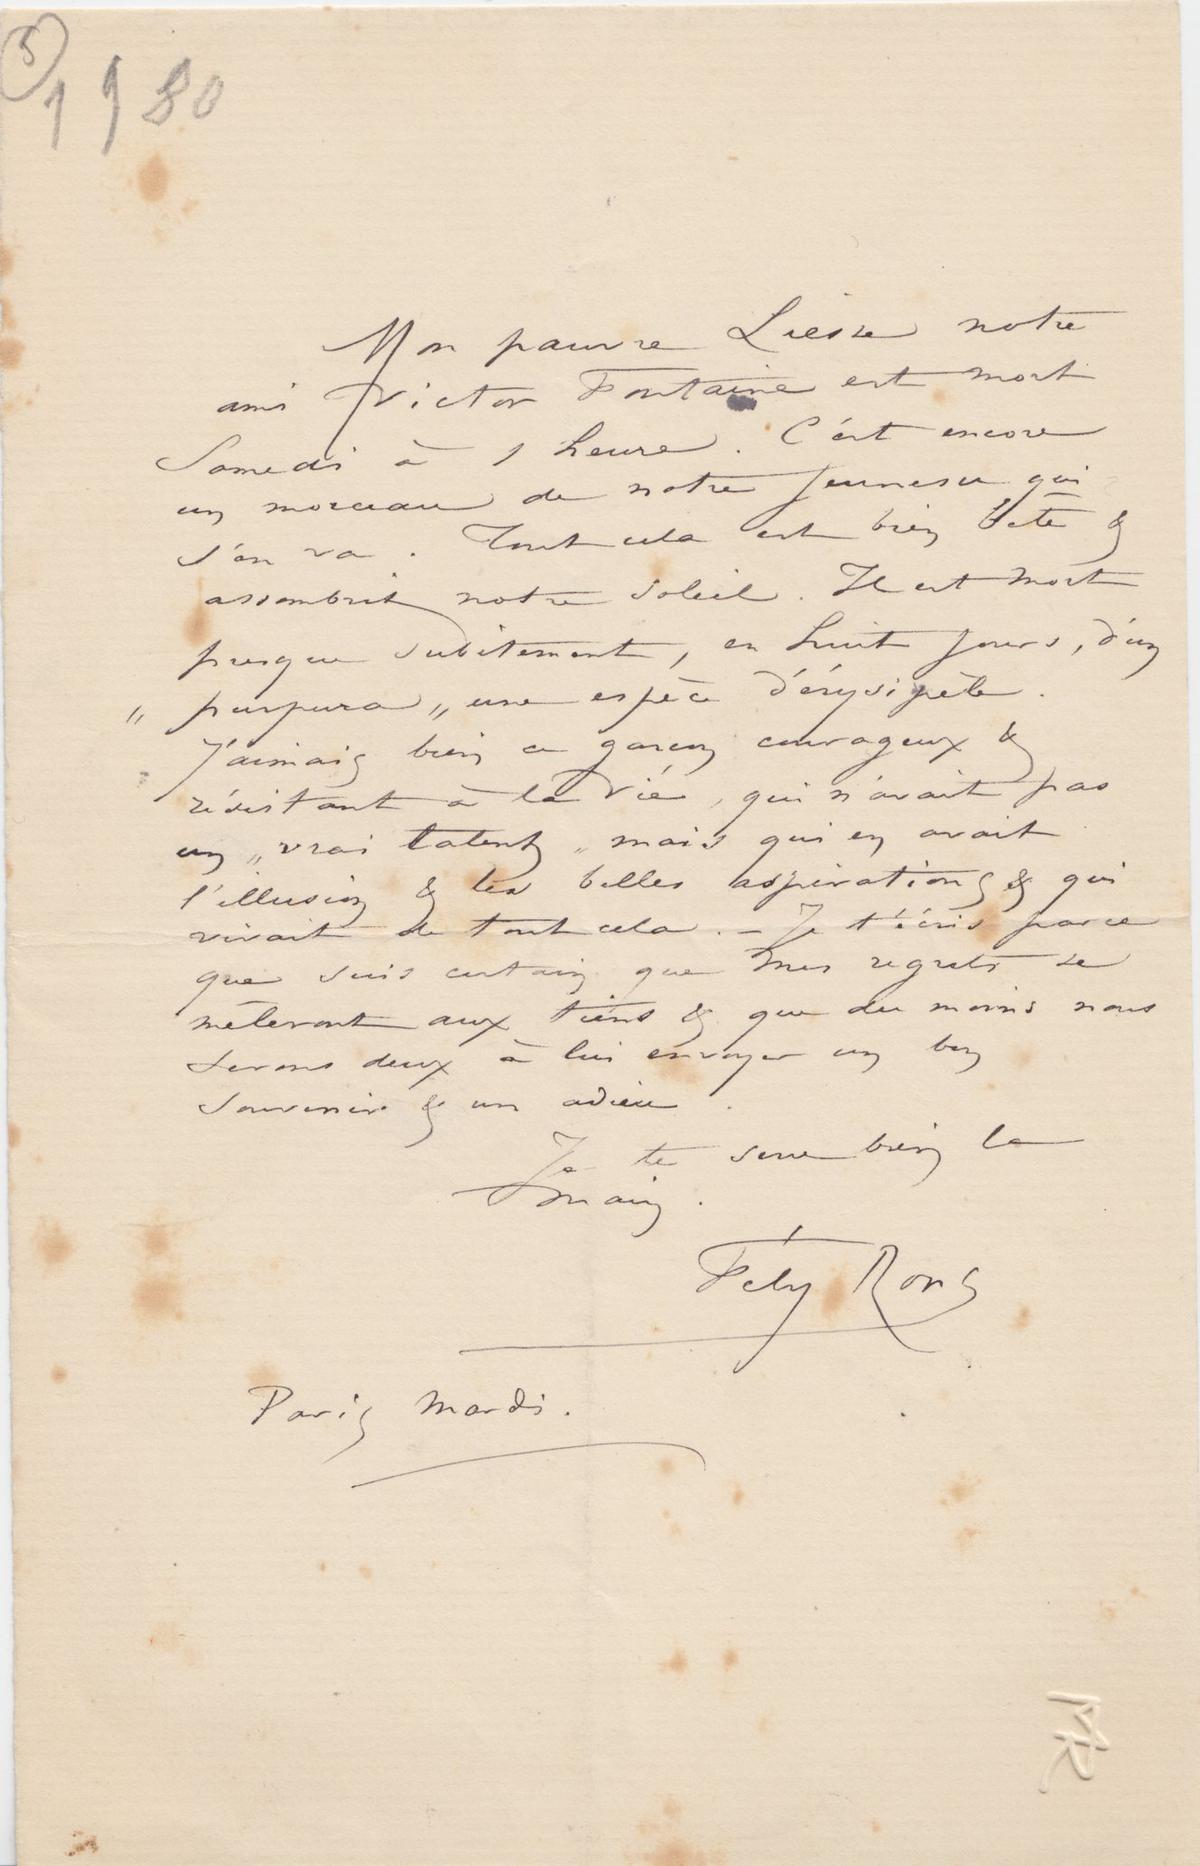 5
1980
Mon pauvre Liesse notre
ami Victor Fontaine est mort
Samedi à 1 heure. C'est encore
un morceau de notre jeunesse qui
s'en va. Tout cela est bien bête &
assombrit notre soleil. Il est mort
presque subitement, en huit jours, d'un
„ purpura „ une espèce d'érysipèle.
J'aimais bien ce garçon courageux &
résistant à la vie, qui n'avait pas
un „ vrai talent „ mais qui en avait
l'illusion & les belles aspirations & qui
vivait de tout cela. – Je t'écris parce
que suis certain que mes regrets se
mêleront aux tiens & que du moins nous
serons deux à lui envoyer un bon
souvenir & un adieu.
Je te serre bien la
main.
Fély Rops
Paris mardi.
FR